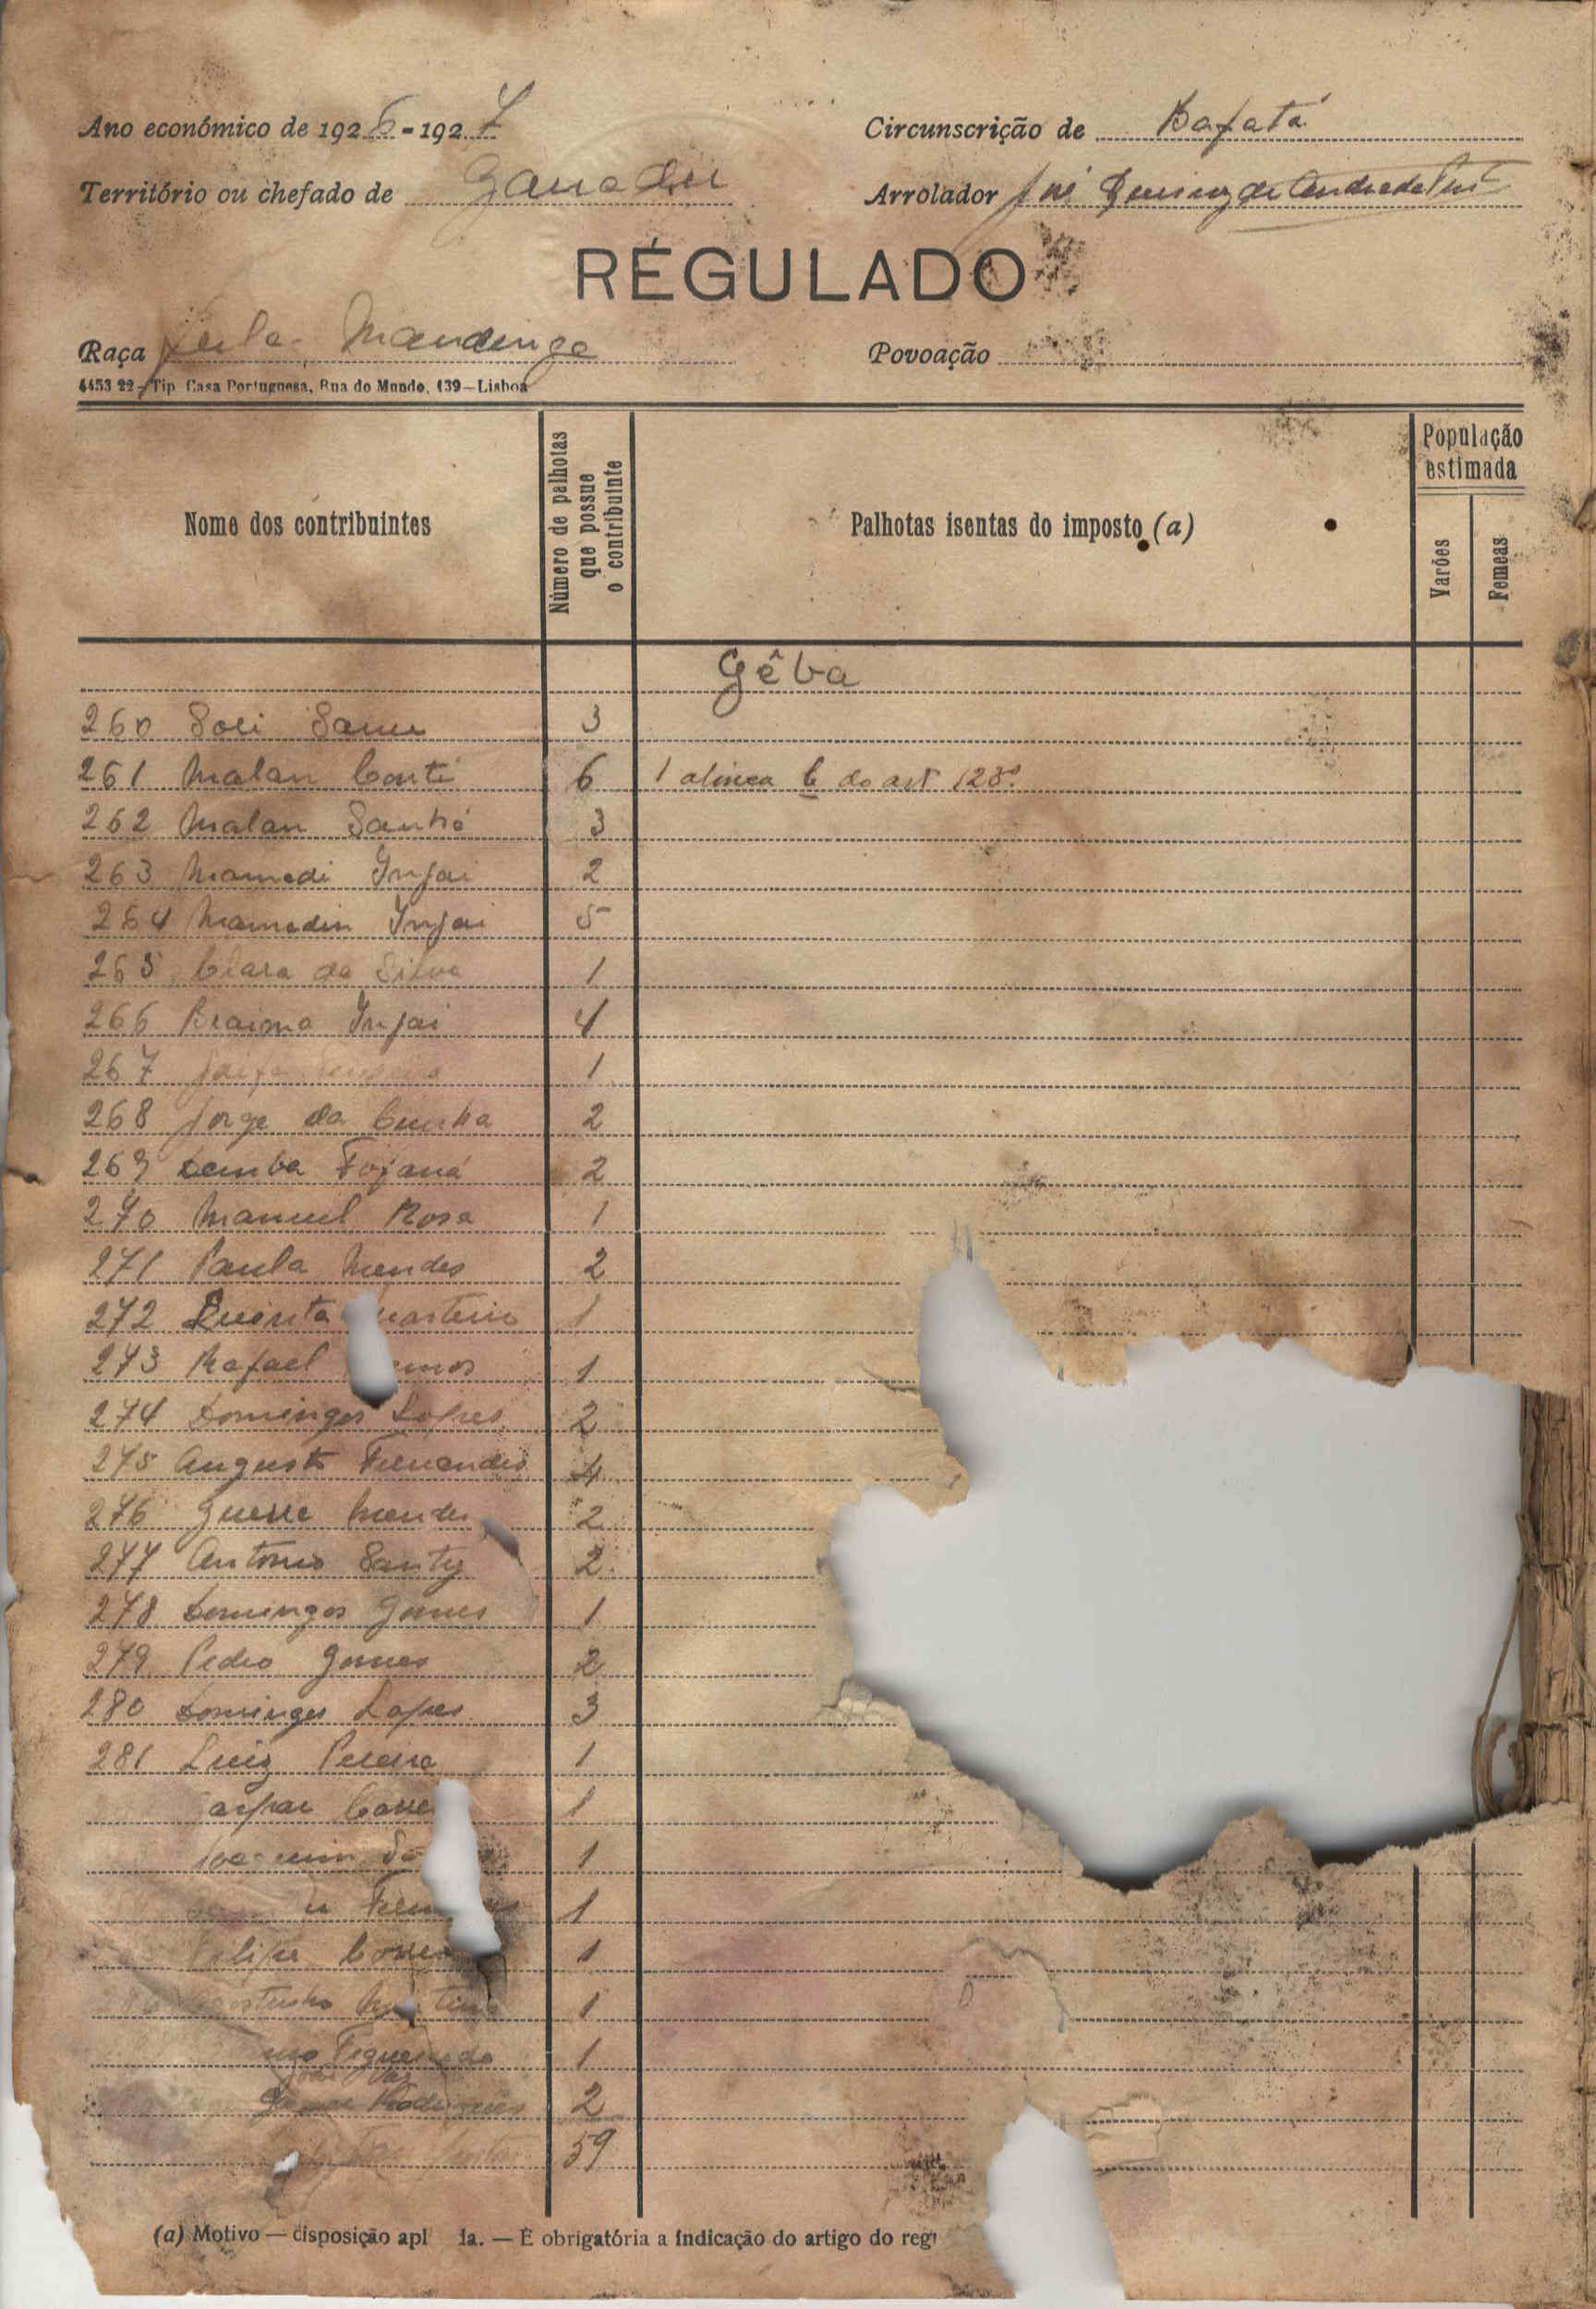 Ano económico de 1926-1927
Circunscrição de Bafatá
Território ou chefado de Ganadu
Arrolador José de Andrade
RÉGULADO
Raça Fula-Mandinga
Povoação
4453 22-Tip. Casa Portuguesa, Rua do Mundo, 139—Lisboa
Nome dos contribuintes
Número de palhotas que possue o contribuinte
Palhotas isentas do imposto (a)
População estimada
Varões
Femeas
Gêba
260 Sori Sanu 3
261 Malan Conté 6 1 alinea b do art 123º.
262 Malan Sanhá 3
263 Mamadi Injai 2
264 Mamadin Injai 5
265 Clara da Silva 1
266 Braima Injai 4
267 1
268 Jorge da Cunha 2
269 Demba Fofaná 2
270 Manuel Rosa 1
271 Paula Mendes 2
272 Quinta 1
273 Rafael 1
274 Domingos Lopes 2
275 Augusto Fernandes 4
276 Guerra Mendes 2
277 Antonio Santy 2
278 Domingos Gomes 1
279 Pedro Gomes 2
280 Domingos Lopes 3
281 Luiz Pereira 1
1
1
1
1
1
Figueiredo 1
Rodrigues 2
59
(a) Motivo — disposição apl da. — É obrigatória a indicação do artigo do reg